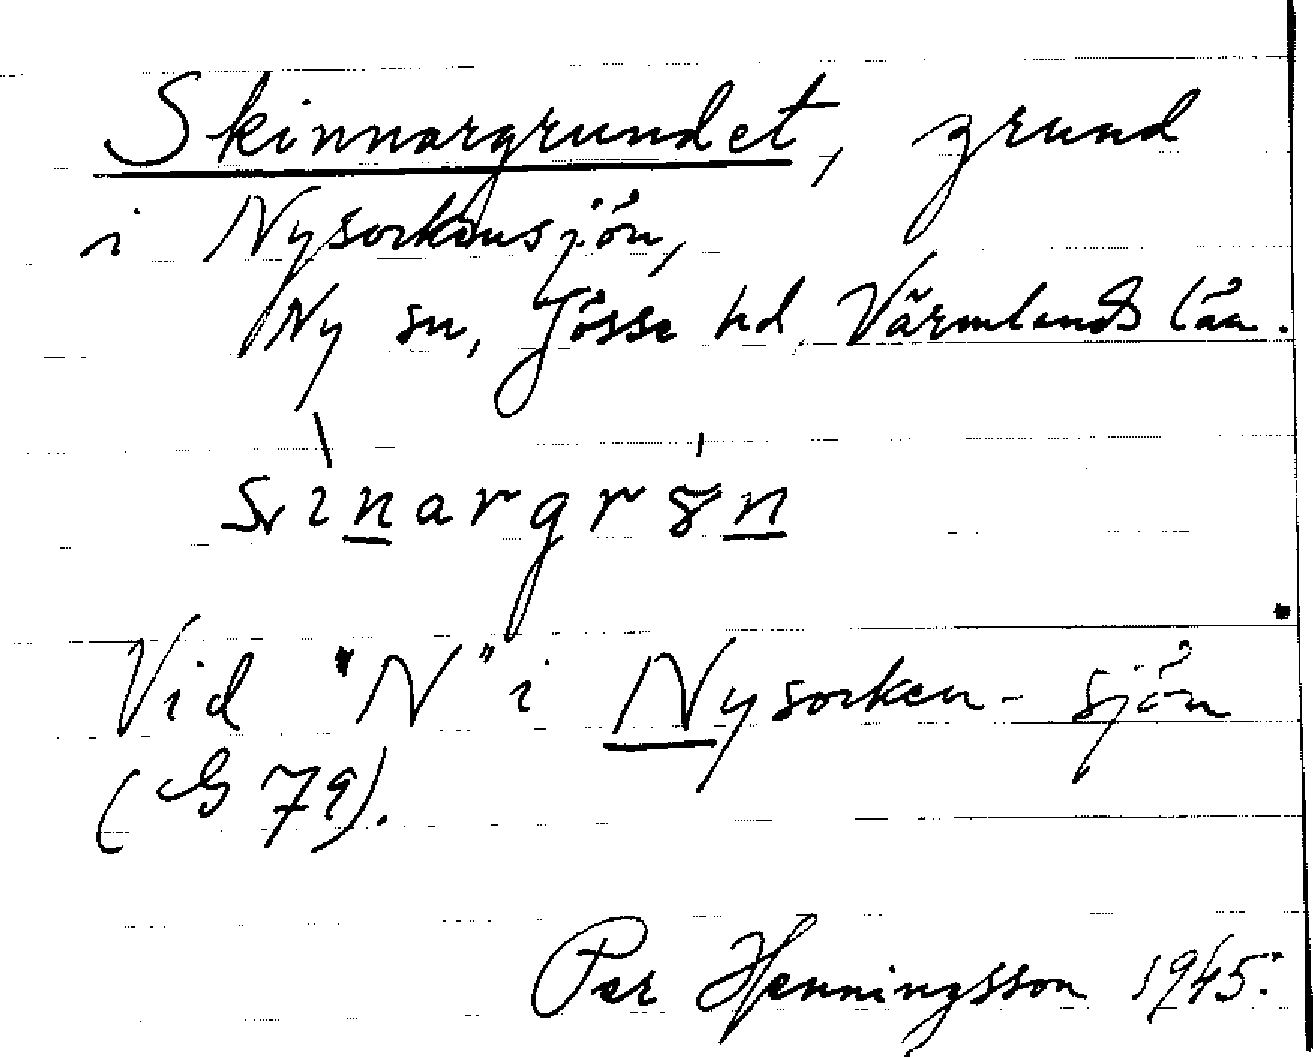 Skinnargrundet, grund
i Nysockensjön,
Ny sn, Jösse hd, Värmlands län.
Vid "N" i Nysocken-sjön
(G 79).
Per Henningsson 1945.